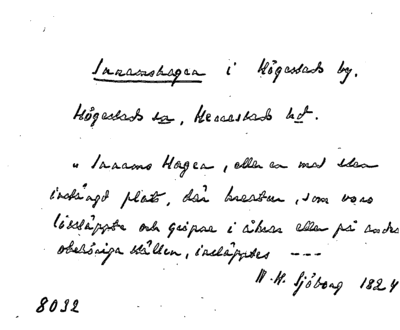 Inramshagen i Högestads by.
Högestads sn, Herrestads hd.
"Inrams Hagen, eller en med sten
instängd plats, där kreatur, som voro
lössläppta och gripne i åkrar eller på andra
obehöriga ställen, insläpptes ---
N. H. Sjöborg 1824
8032